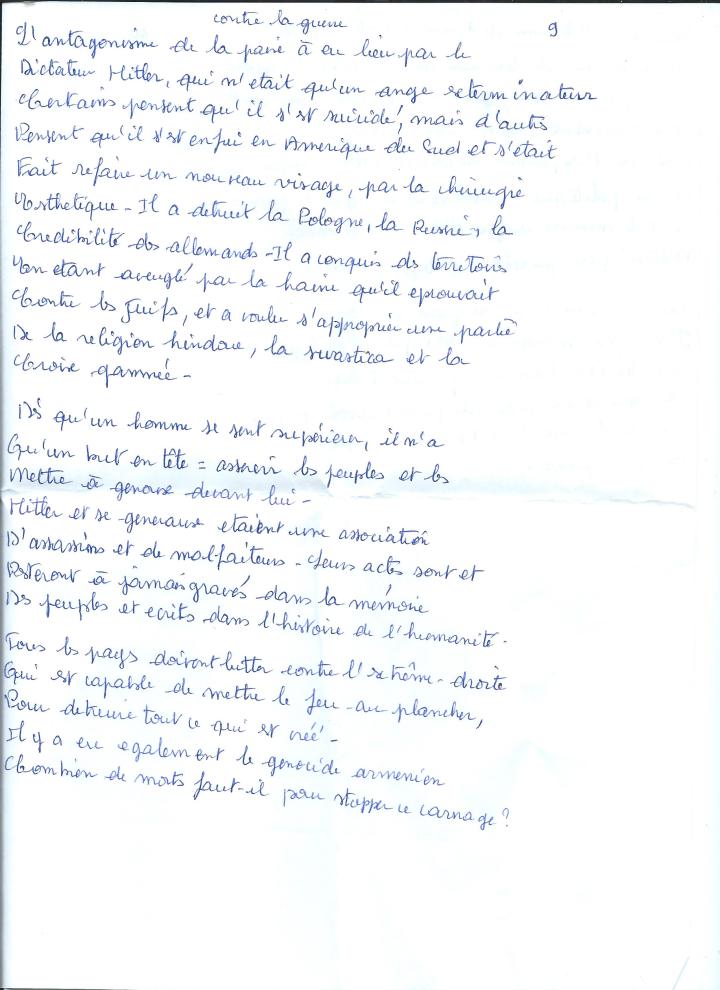 contre la guerre
9
L'antagonisme de la paix à eu lieu par le
Dictateur Hitler, qui n'était qu'un ange exterminateur
Certains pensent qu'il s'est suicidé, mais d'autres
Pensent qu'il s'est enfui en Amerique du Sud et s'était
Fait refaire un nouveau visage, par la chirurgie
Esthetique - Il a detruit la Pologne, la Russie, la
Credibilité des allemands - Il a conquis des territoires
En etant aveuglé par la haine qu'il eprouvait
Contre les Juifs, et a voulu s'approprier une partie
De la religion hindoue, la swastika et la
Croix gammée -
Dès qu'un homme se sent supérieur, il n'a
Qu'un but en tête = asservir les peuples et les
Mettre à genoux devant lui -
Hitler et se generaux etaient une association
D'assassins et de malfaiteurs - Leurs actes sont et
Resteront à jamais gravés dans la mémoire
Des peuples et ecrits dans l'histoire de l'humanité -
Tous les pays doivent lutter contre l'extrême-droite
Qui est capable de mettre le feu au plancher,
Pour detruire tout ce qui est créé -
Il y a eu egalement le genocide armenien
Combien de morts faut-il pour stopper ce carnage ?